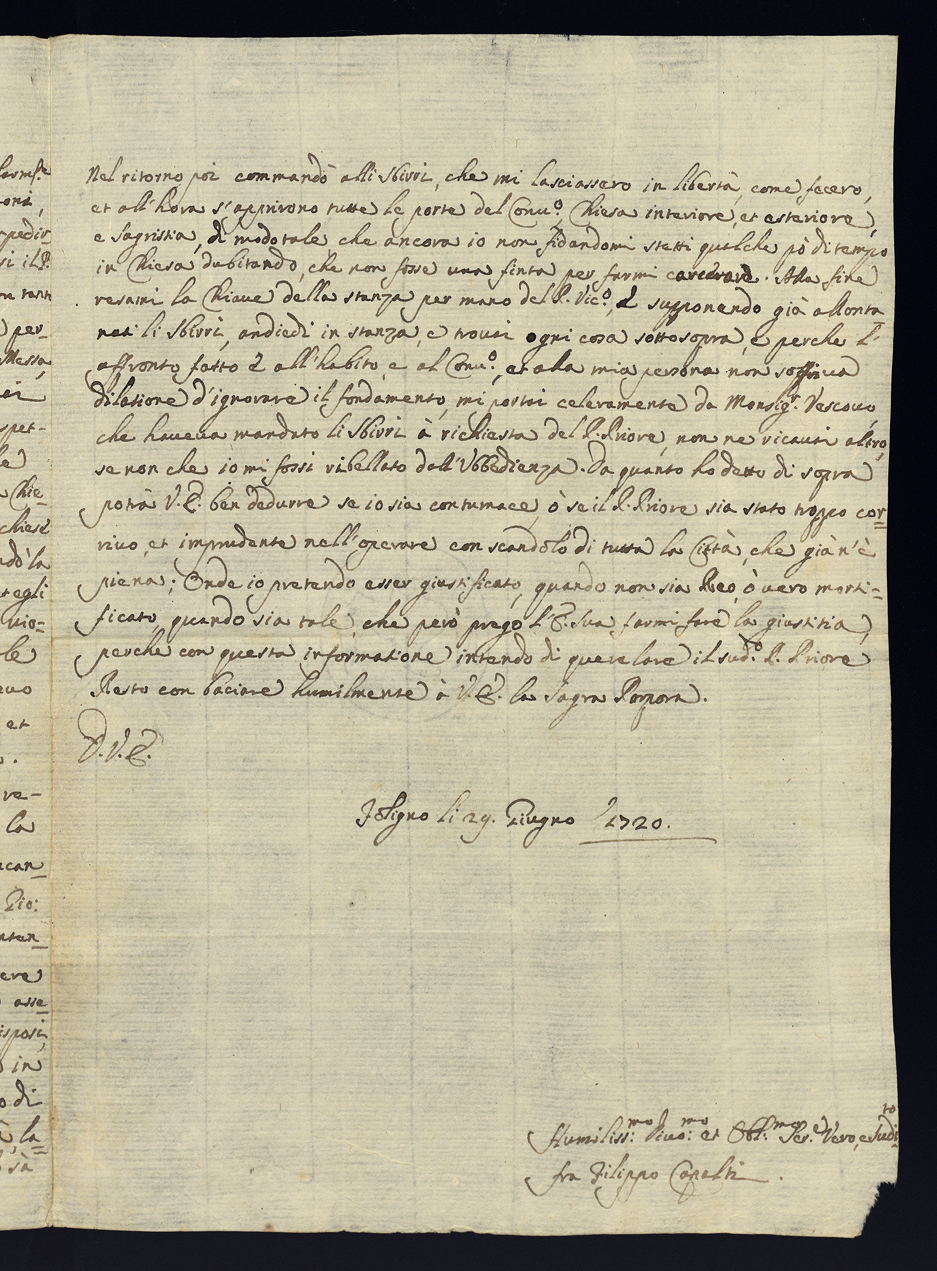 Nel ritorno poi commandò alli Sbirri, che mi lasciassero in libertà, come fecero,
et all'hora s'apprirono tutte le porte del Conu.º Chiesa interiore, et esteriore,
e Sagristia, di modo tale che ancora io non fidandomi stetti qualche pò di tempo
in Chiesa dubitando, che non fosse una finta per farmi carcerare. Alla fine
resami la Chiave della stanza per mano del P. Vic.º, e supponendo già allonta
nati li Sbirri, andiedi in stanza, e trovai ogni cosa sottosopra, e perche l'
affronto fatto è all'habito, e al Conu.º, et alla mia persona non soffriva
dilatione d'ignorare il fondamento, mi portai celeramente da Monsig.r Vescovo,
che haueua mandato li Sbirri à richiesta del P. Priore, non ne ricavai altro,
se non che io mi fossi ribellato dall'Ubbedienza. Da quanto ho detto di sopra
potrà V.E. ben dedurre se io sia contumace, ò se il P. Priore sia stato troppo cor=
rivo, et imprudente nell'operare con scandolo di tutta la Città, che già n'è
piena; Onde io pretendo esser giustificato, quando non sia Reo, ò vero morti=
ficato, quando sia tale, che però prego l'E. Sua farmi fare la giustitia,
perche con questa informatione intendo di querelare il sud.º P. Priore
Resto con baciare humilmente à V.E. la Sagra Porpora.
D.V.E.
Foligno li 29. Giugno 1720.
Humiliss:mo Diuo:mo et Obl:mo Ser.e Vero, e Sudito
fra Filippo Capalti.